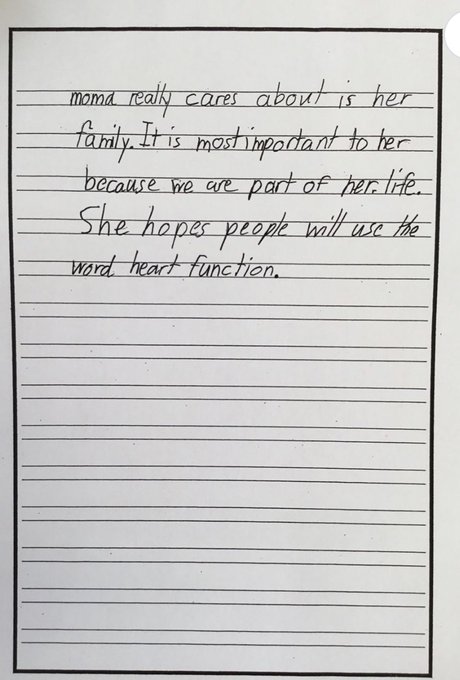 moma really cares about is her
family. It is most important to her
because we are part of her life.
She hopes people will use the
word heart function.